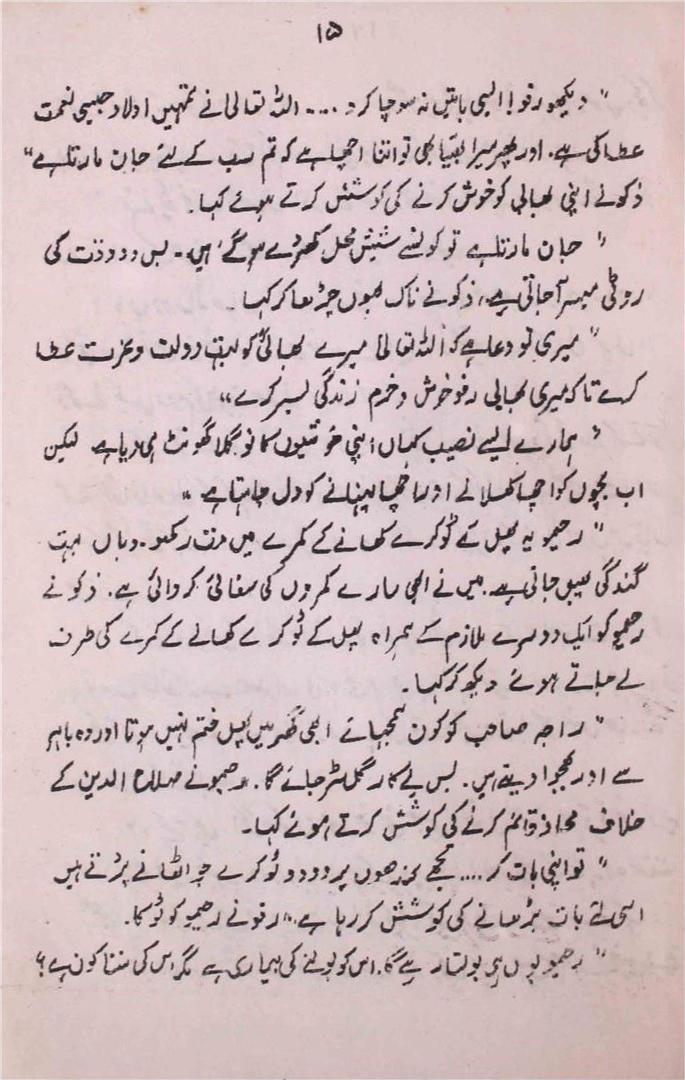 ۱۵
" دیکھو رفو! ایسی باتیں نہ سوچا کرو .... اللہ تعالیٰ نے تمہیں اولاد جیسی نعمت
عطا کی ہے۔ اور پھر میرا بھیّا بھی تو اتنا اچھا ہے کہ تم سب کے لئے جان مارتا ہے "
ذکو نے اپنی بھابی کو خوش کرنے کی کوشش کرتے ہوئے کہا۔
" جان مارتا ہے تو کونسے شیش محل کھڑے ہو گئے ہیں۔ بس دو وقت کی
روٹی میسر آ جاتی ہے، ذکو نے ناک بھوں چڑھا کر کہا۔
" میری تو دعا ہے کہ اللہ تعالیٰ میرے بھائی کو بہت دولت و عزت عطا
کرے تاکہ میری بھابی رفو خوش و خرم زندگی بسر کرے "
" ہمارے ایسے نصیب کہاں! اپنی خوشیوں کا تو گلا گھونٹ ہی دیا ہے لیکن
اب بچوں کو اچھا کھلانے اور اچھا پہنانے کو دل چاہتا ہے "
" رحیمو یہ پھل کے ٹوکرے کھانے کے کمرے میں مت رکھو۔ وہاں بہت
گندگی پھیل جاتی ہے۔ میں نے ابھی سارے کمروں کی صفائی کروائی ہے۔ ذکو نے
رحیمو کو ایک دوسرے ملازم کے ہمراہ پھل کے ٹوکرے کھانے کے کمرے کی طرف
لے جاتے ہوئے دیکھ کر کہا۔
" راجہ صاحب کو کون سمجھائے ابھی گھر میں پھل ختم نہیں ہوتا اور وہ باہر
سے اور بھجوا دیتے ہیں۔ بس بے کار گل سڑ جائے گا۔ رحیمو نے صلاح الدین کے
خلاف محاذ قائم کرنے کی کوشش کرتے ہوئے کہا۔
" تو اپنی بات کر .... تجھے کندھوں پر دو دو ٹوکرے جو اٹھانے پڑتے ہیں
اسی لئے بات بڑھانے کی کوشش کر رہا ہے۔" رفو نے رحیمو کو ٹوکا۔
" رحیمو یوں ہی بولتا رہے گا۔ اس کو بولنے کی بیماری ہے مگر اس کی سنتا کون ہے؟